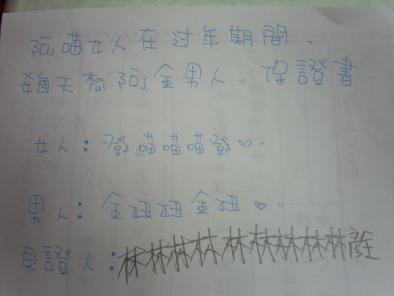 阿喵女人在过年期間..
每天愁阿金男人..保證書
女人:鄧喵喵喵鄧♡..
男人:金丑丑金丑♡..
見證人:林林林林林林林林林